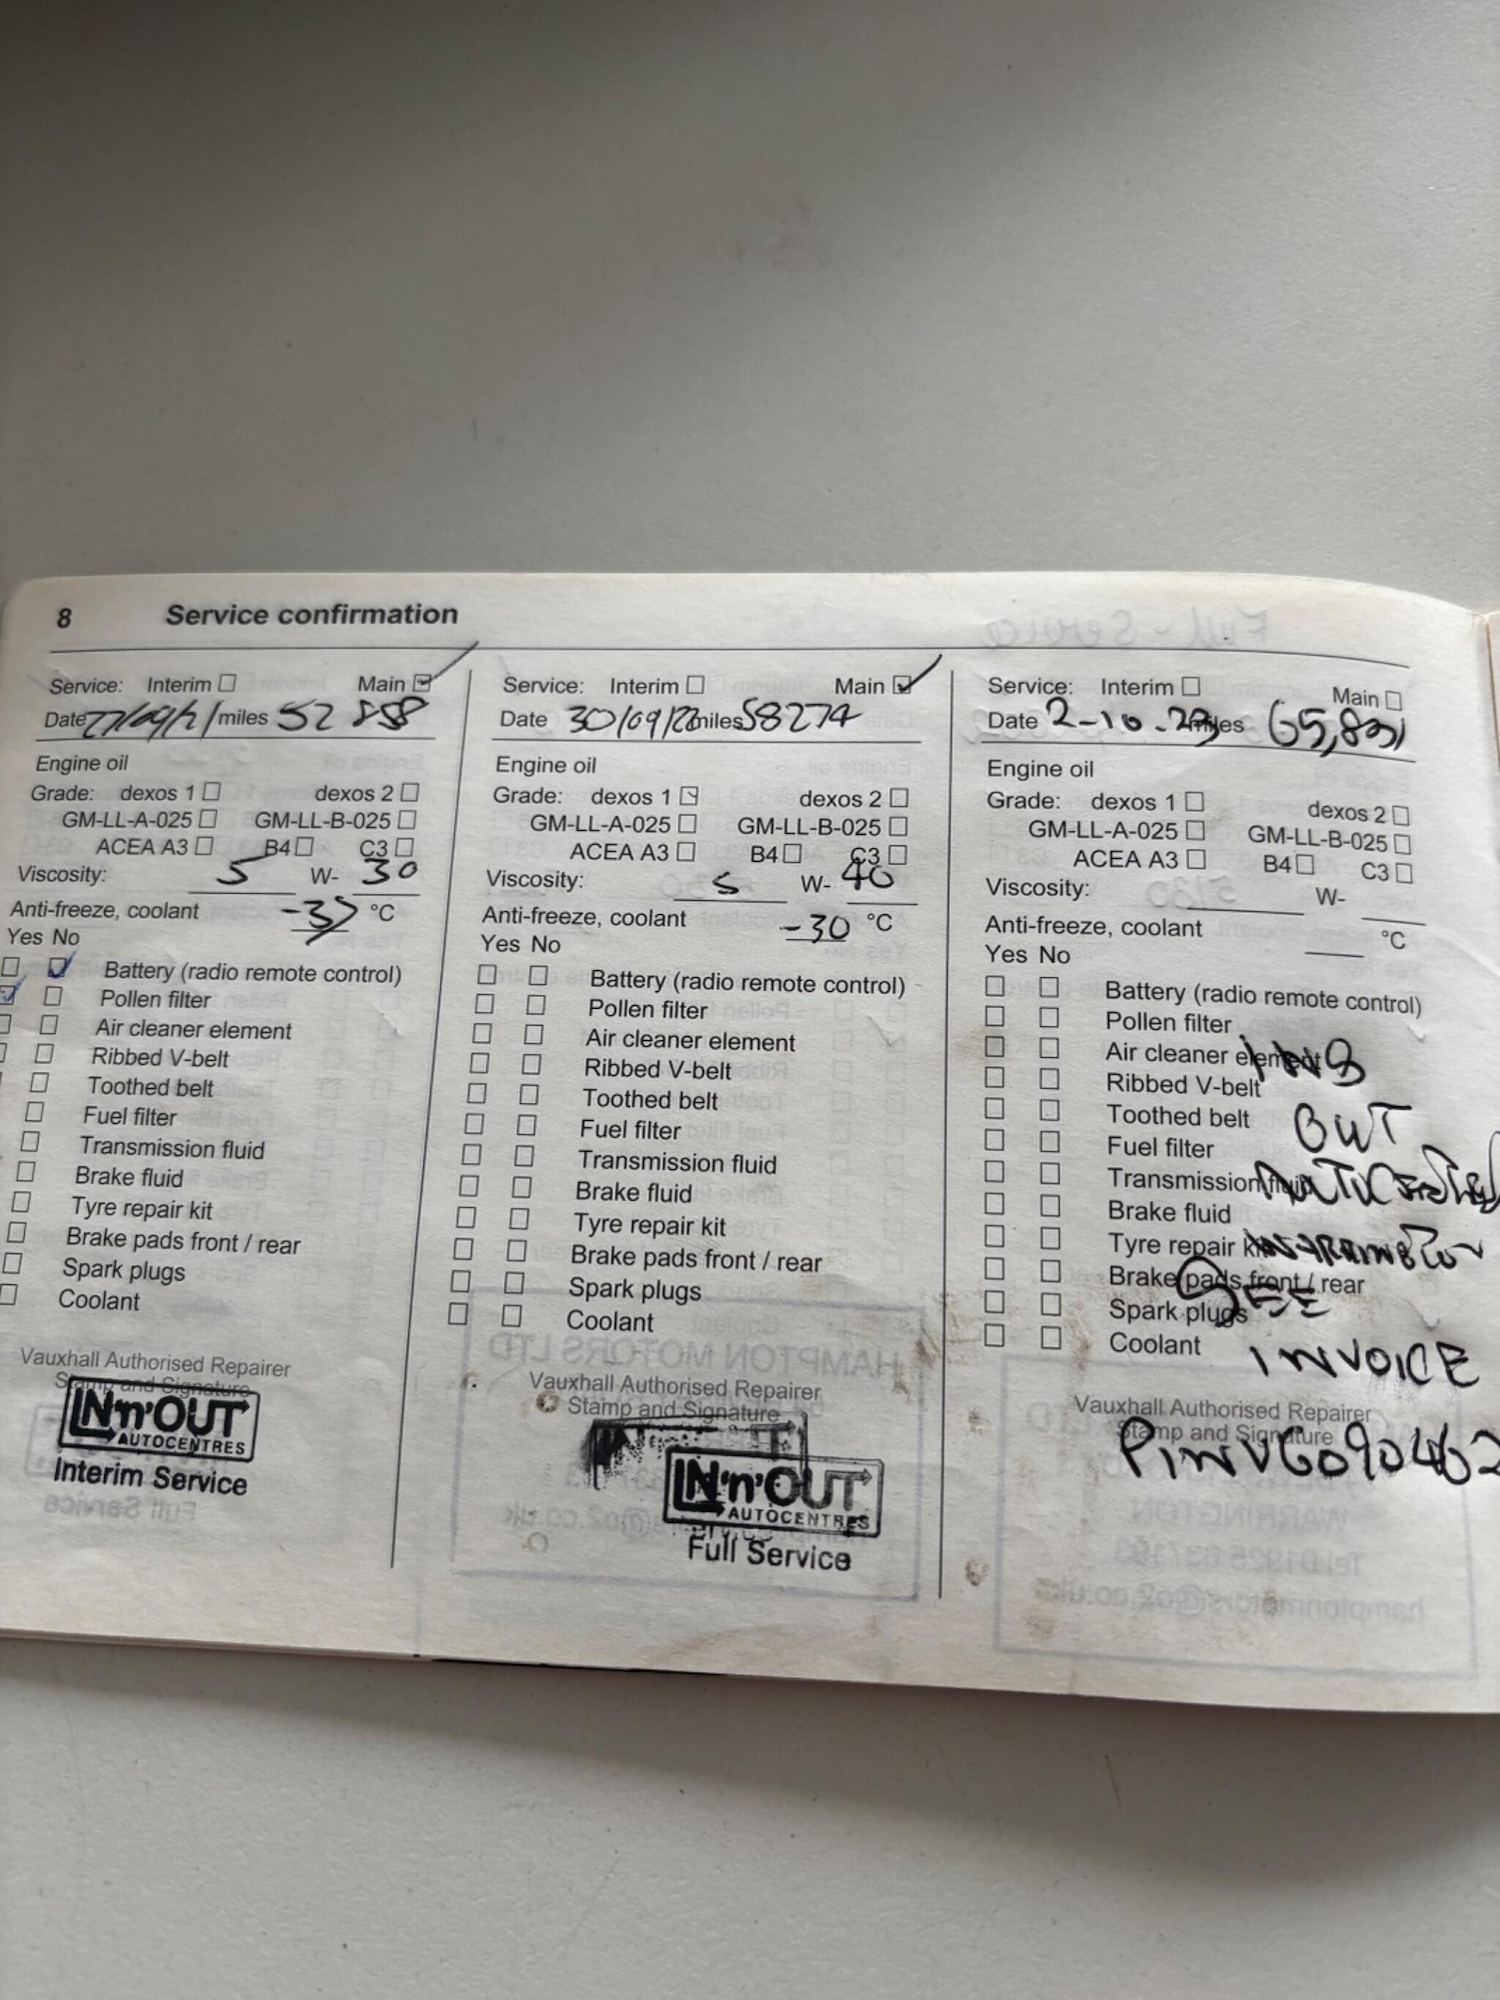 8 Service confirmation
Service: Interim Main
Date 27/09/21 miles 52 858
Engine oil
Grade: dexos 1 dexos 2
GM-LL-A-025 GM-LL-B-025
ACEA A3 B4 C3
Viscosity: 5 W- 30
Anti-freeze, coolant -37 °C
Yes No
Battery (radio remote control)
Pollen filter
Air cleaner element
Ribbed V-belt
Toothed belt
Fuel filter
Transmission fluid
Brake fluid
Tyre repair kit
Brake pads front / rear
Spark plugs
Coolant
Vauxhall Authorised Repairer
Stamp and Signature
IN'n'OUT
AUTOCENTRES
Interim Service
Service: Interim Main
Date 30/09/22 miles 58274
Engine oil
Grade: dexos 1 dexos 2
GM-LL-A-025 GM-LL-B-025
ACEA A3 B4 C3
Viscosity: 5 W- 40
Anti-freeze, coolant -30 °C
Yes No
Battery (radio remote control)
Pollen filter
Air cleaner element
Ribbed V-belt
Toothed belt
Fuel filter
Transmission fluid
Brake fluid
Tyre repair kit
Brake pads front / rear
Spark plugs
Coolant
Vauxhall Authorised Repairer
Stamp and Signature
IN'n'OUT
AUTOCENTRES
Full Service
Service: Interim Main
Date 2-10.23 miles 65,831
Engine oil
Grade: dexos 1 dexos 2
GM-LL-A-025 GM-LL-B-025
ACEA A3 B4 C3
Viscosity: W-
Anti-freeze, coolant °C
Yes No
Battery (radio remote control)
Pollen filter
Air cleaner element
Ribbed V-belt
Toothed belt
Fuel filter
Transmission fluid
Brake fluid
Tyre repair kit
Brake pads front / rear
Spark plugs
Coolant
OUT
WARRINGTON
SEE
INVOICE
Vauxhall Authorised Repairer
Stamp and Signature